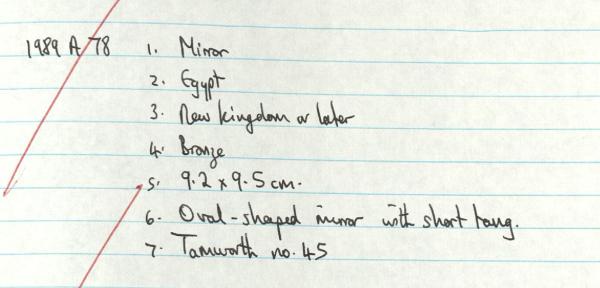 1989 A 78 1. Mirror
2. Egypt
3. New kingdom or later
4. Bronze
5. 9.2 x 9.5 cm.
6. Oval-shaped mirror with short tang.
7. Tamworth no. 45